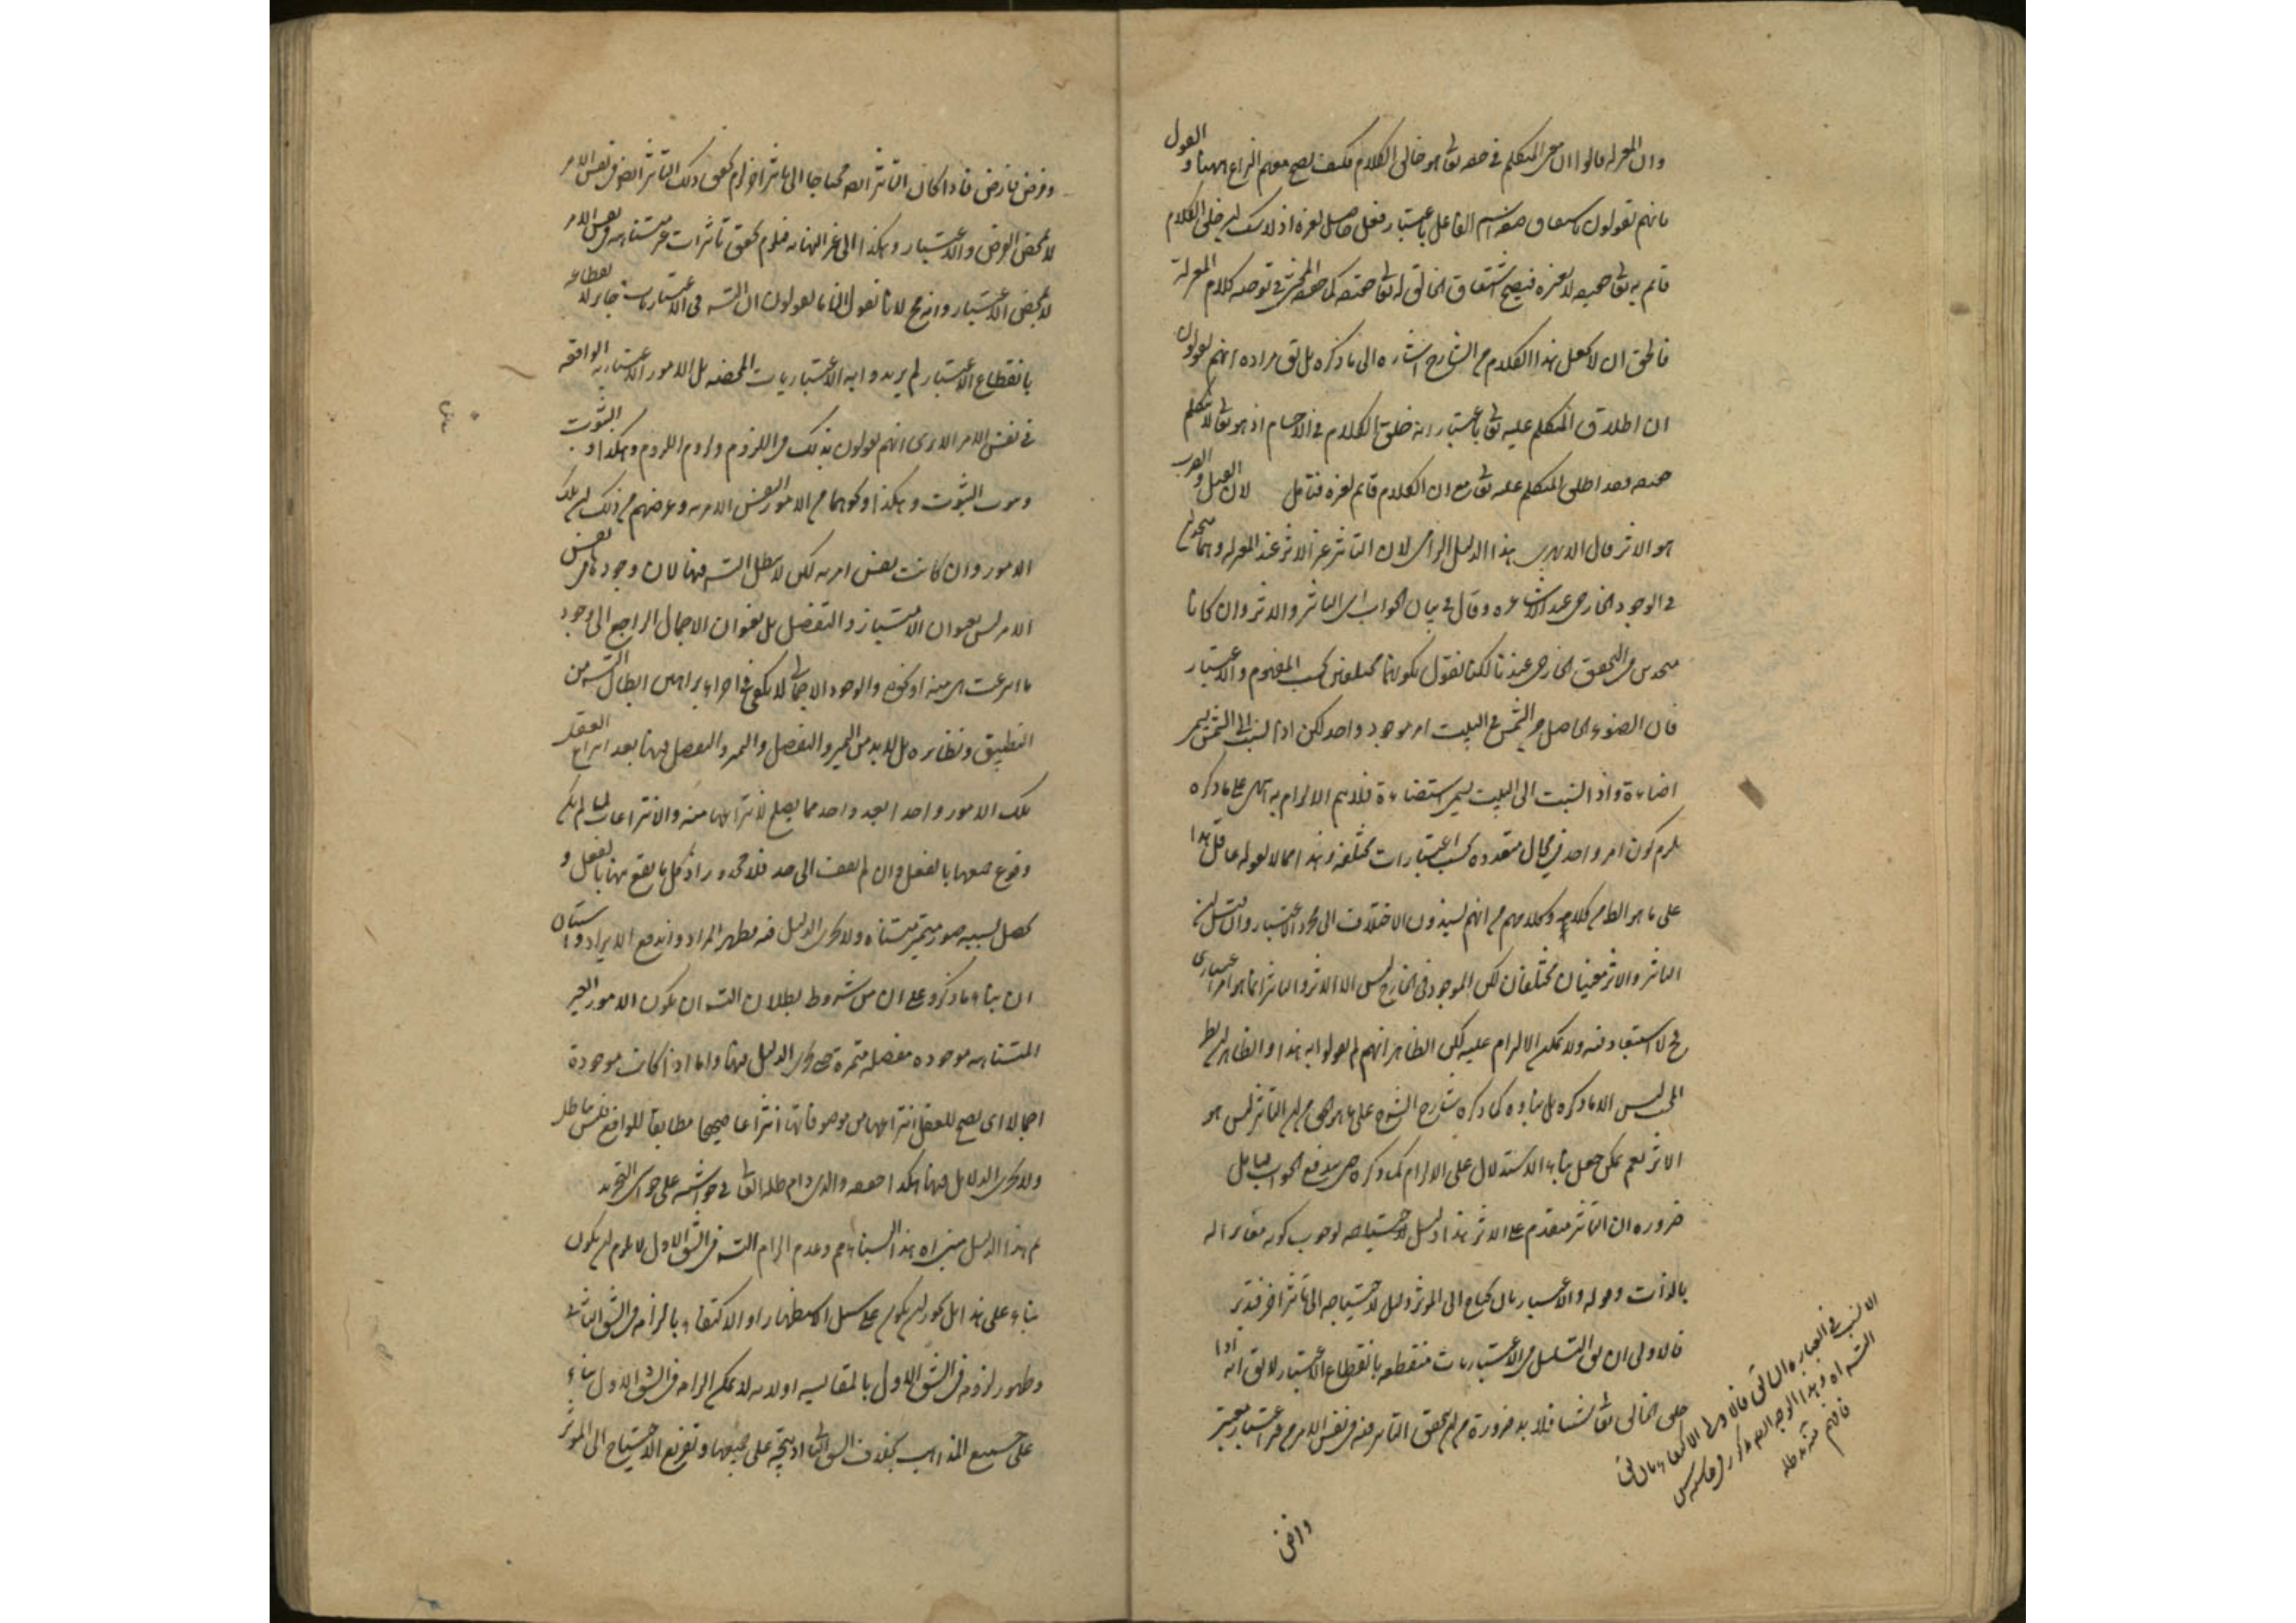 وان المعزلة قالوا ان معنى المتكلم في حقه تعا هو خالق الكلام فكيف يصح معهم النزاع ههنا و القول
بانهم يقولون باشتقاق اسم الفاعل باعتبار فعل حاصل لغيره اذ لا شك ان خلق الكلام
قائم به تعا حقيقة لا بغيره فيصح اشتقاق الخالق له تعا في توجيه كلام المعزلة
فالحق ان لا يجعل هذا الكلام من الشارح اشارة الى ما ذكره بل نق مراده انهم يقولون
ان اطلاق المتكلم عليه تعا باعتبار انه خلق الكلام في الاجسام اذ هو تعا لا تكلم
فقد اطلق المتكلم عليه تعا مع ان الكلام قائم لغيره فتامل لان القتل و الضرب
هو الاثر قال الابهري هذا الدليل الزامي لان التاثير غير الاثر عند المعزلة وهما متحدان
في الوجود الخارجي عند الاشاعرة وقال في بيان الجواب ان التاثير والاثر وان كانا
متحدين في التحقق الخارجي عندنا لكنا نقول بكونهما مختلفين بحسب المفهوم والاعتبار
فان الضوء الحاصل من الشمس في البيت امر موجود واحد لكن اذا نسب الى الشمس يسمى
اضاءة واذا نسبت الى البيت يسمى استضاءة فلا يتم الالزام به انتهى على ما ذكره
يلزم كون امر واحد في محال متعددة بحسب اعتبارات مختلفة وهذا مما لا يقوله عاقل
على ما هو الظاهر من كلامه وكلامهم من انهم يسندون الاختلاف الى مجرد الاعتبار وان قيل ان
التاثير والاثر معنيان مختلفان لكن الموجود في الخارج ليس الا الاثر والتاثير انما هو امر اعتباري
فح لا استبعاد فيه ولا يمكن الالزام عليه لكن الظاهر انهم لم يقولوا به هذا والظاهر ان
المجيب ليس الا ما ذكره بل بناؤه كما ذكره شارح الشرح على ما هو الحق من ان التاثير ليس هو
الاثر نعم يمكن جعل بناء الاستدلال على الالزام كما ذكره حتى يندفع الجواب فتامل
ضرورة ان التاثير متقدم على الاثر هذا دليل لاحتياجه لوجوب كونه مغايرا له
بالذات وقوله والاعتبار بان يحتاج الى الموثر دليل لاحتياجه الى تاثير اخر فتدبر
فالاولى ان يق التسلسل في الاعتباريات منقطعة بانقطاع الاعتبار لا يق انه اذا
خلق الخالق تعا شيئا فلا بد ضرورة من ان يتحقق التاثير منه في نفس الامر من غير اعتبار معتبر
وفرض
وفرض فارض فاذا كان التاثير ايضا محتاجا الى تاثير اخر لزم تحقق ذلك التاثير ايضا في نفس الامر
لا بمحض الفرض والاعتبار وهكذا الى غير النهاية فيلزم تحقق تاثيرات غير متناهية في نفس الامر
لا بمحض الاعتبار وانه مح لانا نقول انما يقولون ان التس في الاعتباريات جايز لانقطاعه
بانقطاع الاعتبار لم يريدوا به الاعتباريات المحضة بل الامور الاعتبارية الواقعة
في نفس الامر الا يرى انهم يقولون بذلك في اللزوم ولزوم اللزوم وهكذا و الثبوت
وثبوت الثبوت وهكذا ونحوهما من الامور النفس الامرية وغرضهم من ذلك ان تلك
الامور وان كانت نفس امرية لكن لا يبطل التس فيها لان وجودها في نفس
الامر ليس بعنوان الامتياز والتفصيل بل بعنوان الاجمال الراجع الى وجود
ما انتزعت هي منه او نحوه والوجود الاجمالي لا يكفي في اجراء براهين ابطال التس من
التطبيق ونظائره بل لا بد من التميز والتفصيل والتميز والتفصيل فيها بعد انتزاع العقل
تلك الامور واحدا بعد واحد مما يصلح لانتزاعها منه والانتزاعات لما لم يكن
وقوع جميعها بالفعل وان لم يقف الى حد فلا محذور اذ كل ما يقع منها بالفعل و
يحصل بسببه صور متميزة متناه ولا يجري الدليل فيه فظهر المراد واندفع الايراد واستبان
ان بناء ما ذكروه على ان من شروط بطلان التس ان يكون الامور الغير
المتناهية موجودة مفصلة متميزة حتى يجري الدليل فيها واما اذا كانت موجودة
اجمالا اى يصح للعقل انتزاعها من موصوفاتها انتزاعا صحيحا مطابقا للواقع فليس باطلا
ولا يجري الدلايل فيها هكذا حققه والدي دام ظله العالي في حواشيه على حواشي التجريد
ثم هذا الدليل هذا البناء وعدم الزام التس في الشق الاول لا يلزم ان يكون
بناء على هذا بل يجوز ان يكون على سبيل الاستظهار او الاكتفاء بالزامه في الشق الثاني
وظهور لزومه في الشق الاول بالمقايسة اولانه لا يمكن الزامه في الشق الاول بناء
على جميع المذاهب بخلاف الشق الثاني على جميعها وتفريع الاحتياج الى الموثر